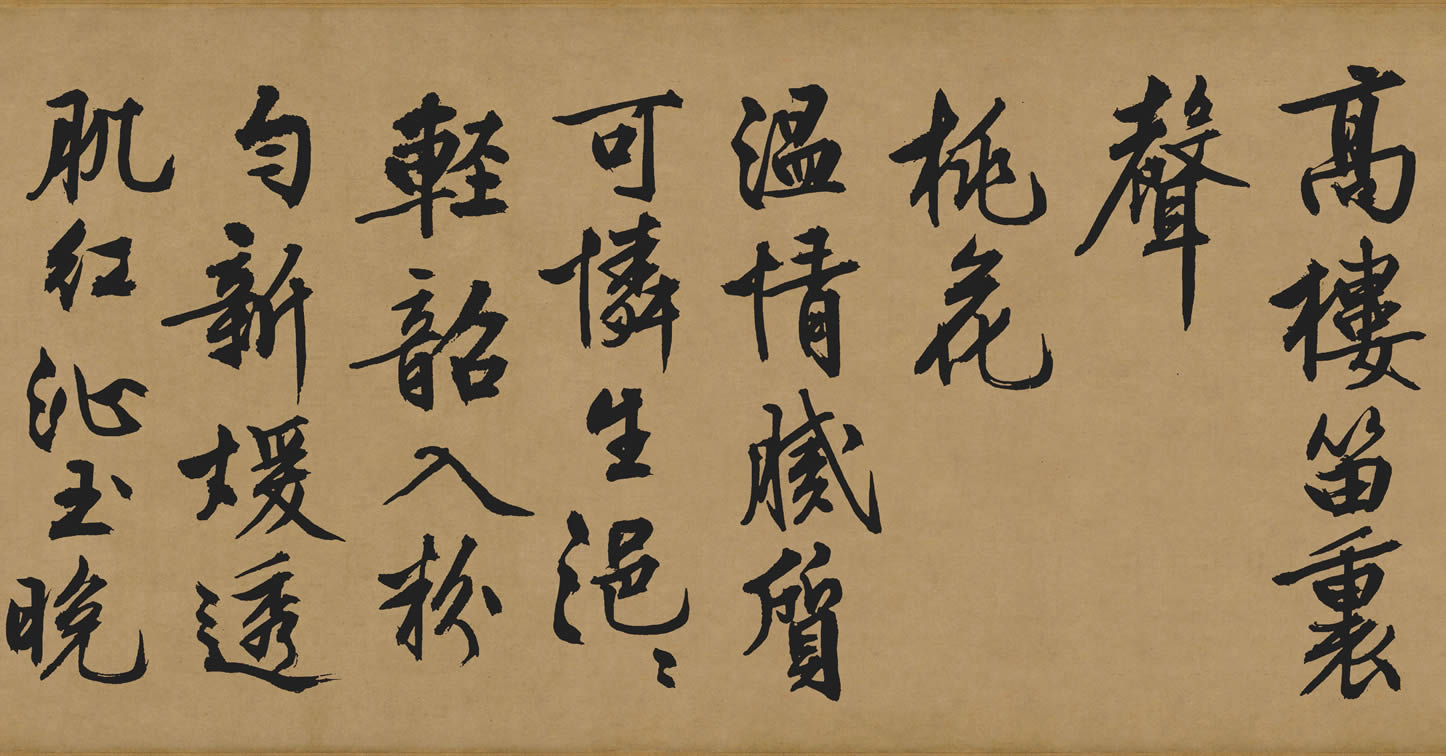 高樓笛裏
聲
桃花
溫情膩質
可憐生浥〻
輕韶入粉
勻新煖透
肌紅沁玉晚